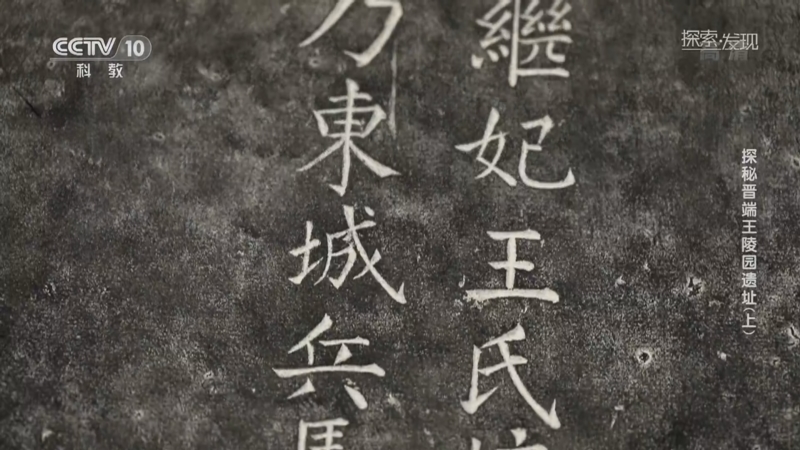 CCTV 10
科教
探索·发现
探秘晋端王陵园遗址(上)
繼妃王氏
乃東城兵馬